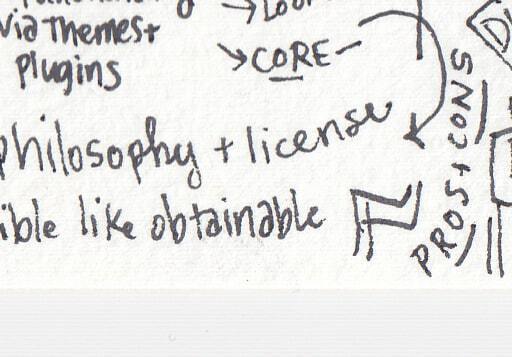 via Themes+
plugins
→ LOOP
→ CORE –
philosophy + license
ible like obtainable
PROS + CONS